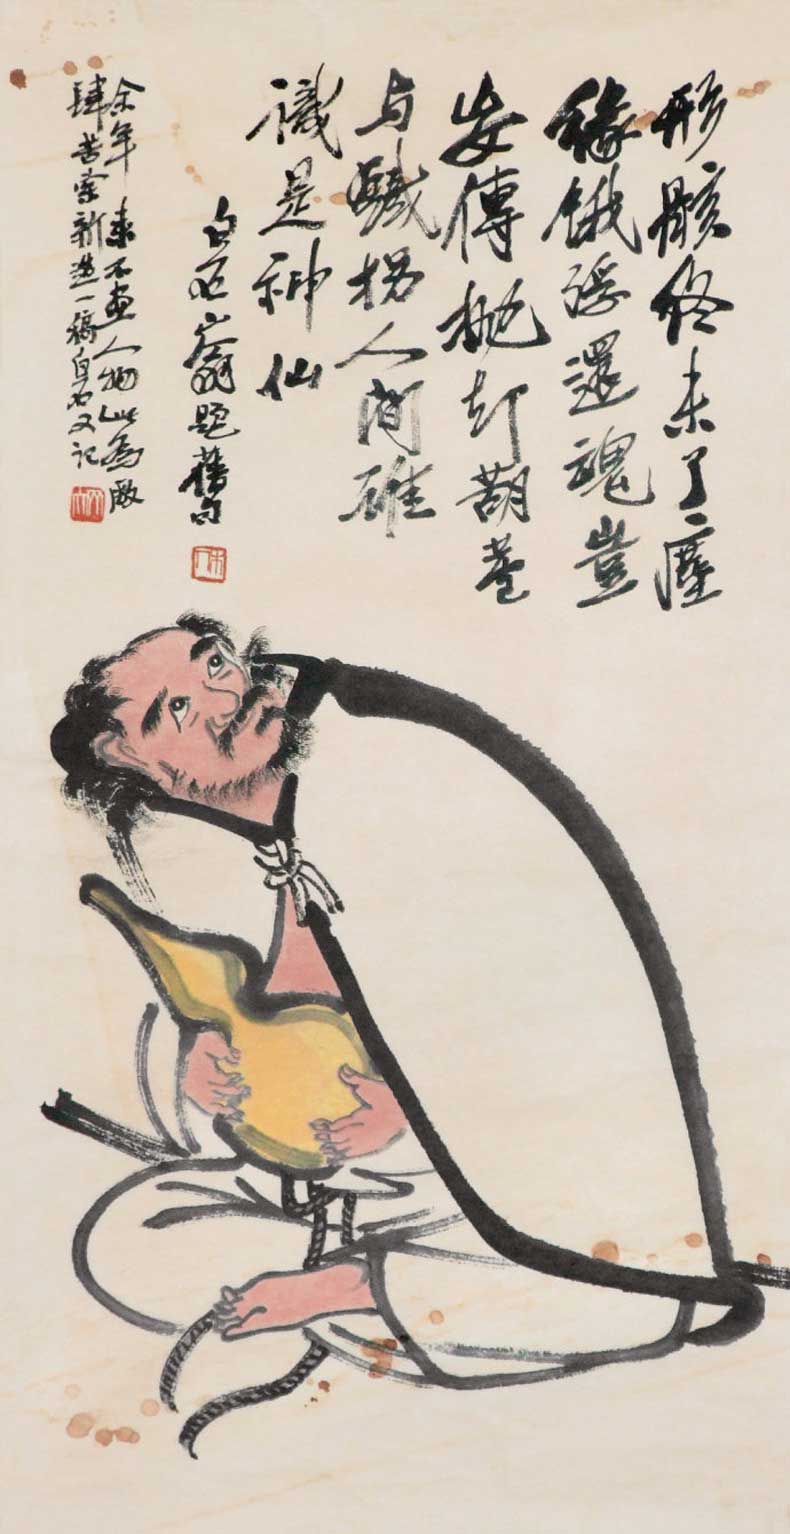 形骸終未了塵
緣餓殍還魂豈
妄傳抛却葫蘆
与鐵拐人間誰
識是神仙
白石山翁題舊句
木人
余年來不画人物此為厰
肆苦索新造一稿白石又記